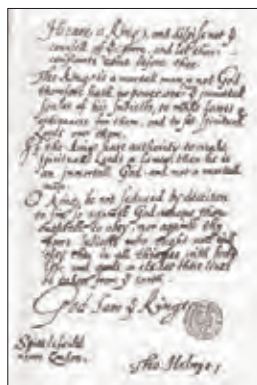 Heare o King, and dispise not ye
counsell of ye poore, and let their
complaints come before thee.
The King is a mortall man, & not God
therefore hath no power over ye immortall
soules of his subiects, to make lawes &
ordinances for them, and to set spirituall
Lords over them.
If the King have authority to make
spirituall Lords & lawes, then he is
an immortall God, and not a mortall
man.
O King, be not seduced by deceivers
to sine so against God whome thou
oughtest to obey, nor against thy
poore subiects who ought and will
obey thee in all thinges with body
life and goods, or els let their lives
be taken from ye earth.
God Save ye King
Spittlefeild
neare London.
Tho: Helwys.